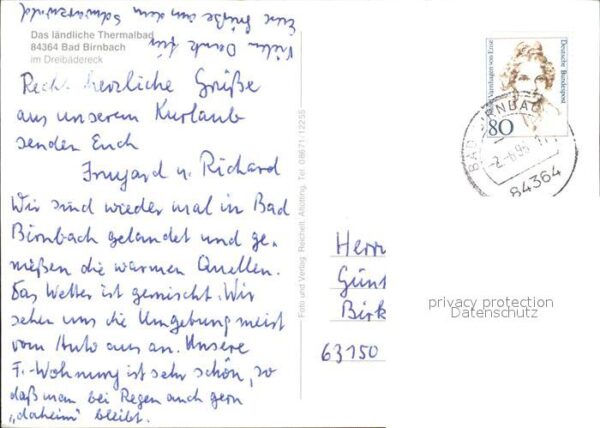 Das ländliche Thermalbad
84364 Bad Birnbach
im Dreibädereck
Vielen Dank für
Eure Grüße aus dem Schwarzwald
Recht herzliche Grüße
aus unserem Kurlaub
senden Euch
Irmgard u. Richard
Wir sind wieder mal in Bad
Birnbach gelandet und ge-
nießen die warmen Quellen.
Das Wetter ist gemischt. Wir
sehen uns die Umgebung meist
vom Auto aus an. Unsere
F.-Wohnung ist sehr schön, so
daß man bei Regen auch gern
"daheim" bleibt.
Foto und Verlag Reichelt, Altötting, Tel. 08671/12255
Varnhagen von Ense
Deutsche Bundespost
80
BAD BIRNBACH
-2.-6.96
84364
Herrn
Günt
Birk
63150
privacy protection
Datenschutz